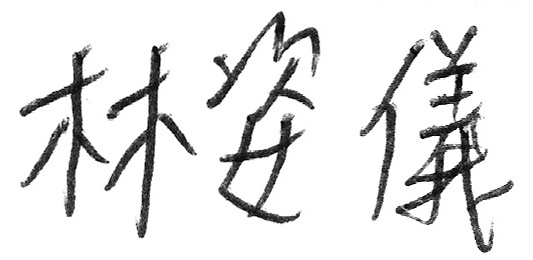 林姿儀